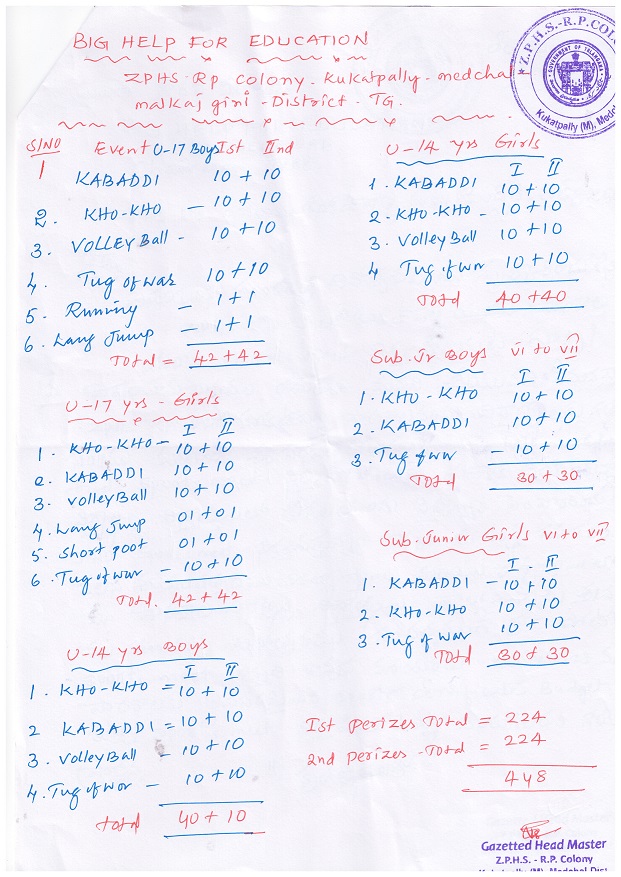 BIG HELP FOR EDUCATION
ZPHS - Rp colony - Kukatpally - medchal
malkaj giri - District - TG.
Z.P.H.S.-R.P.COLO
GOVERNMENT OF TELANGANA
Kukatpally (M), Medch
S/NO Event U-17 Boys Ist IInd
1 KABADDI 10 + 10
2. KHO-KHO - 10 + 10
3. VOLLEY Ball - 10 + 10
4. Tug of war 10 + 10
5. Running - 1 + 1
6. Lang Jump - 1 + 1
Total = 42 + 42
U-17 yrs - Girls
I II
1. KHO-KHO - 10 + 10
2. KABADDI 10 + 10
3. volley Ball 10 + 10
4. Lang Jump 01 + 01
5. Short poot 01 + 01
6. Tug of war - 10 + 10
Total. 42 + 42
U-14 yrs Boys
I II
1. KHO-KHO = 10 + 10
2 KABADDI = 10 + 10
3. volley Ball - 10 + 10
4. Tug of wor - 10 + 10
total 40 + 10
U-14 yrs Girls
I II
1. KABADDI 10 + 10
2. KHO-KHO - 10 + 10
3. Volley Ball 10 + 10
4 Tug of wor 10 + 10
Total 40 + 40
Sub. Jr Boys vi to vii
I II
1. KHO - KHO 10 + 10
2. KABADDI 10 + 10
3. Tug of wor - 10 + 10
Total 30 + 30
Sub. Junior Girls vi to vii
I - II
1. KABADDI - 10 + 10
2. KHO-KHO 10 + 10
3. Tug of war 10 + 10
Total 30 + 30
Ist perizes Total = 224
2nd perizes - Total = 224
448
Gazetted Head Master
Z.P.H.S. - R.P. Colony
Kukatpally (M), Medchal Dist